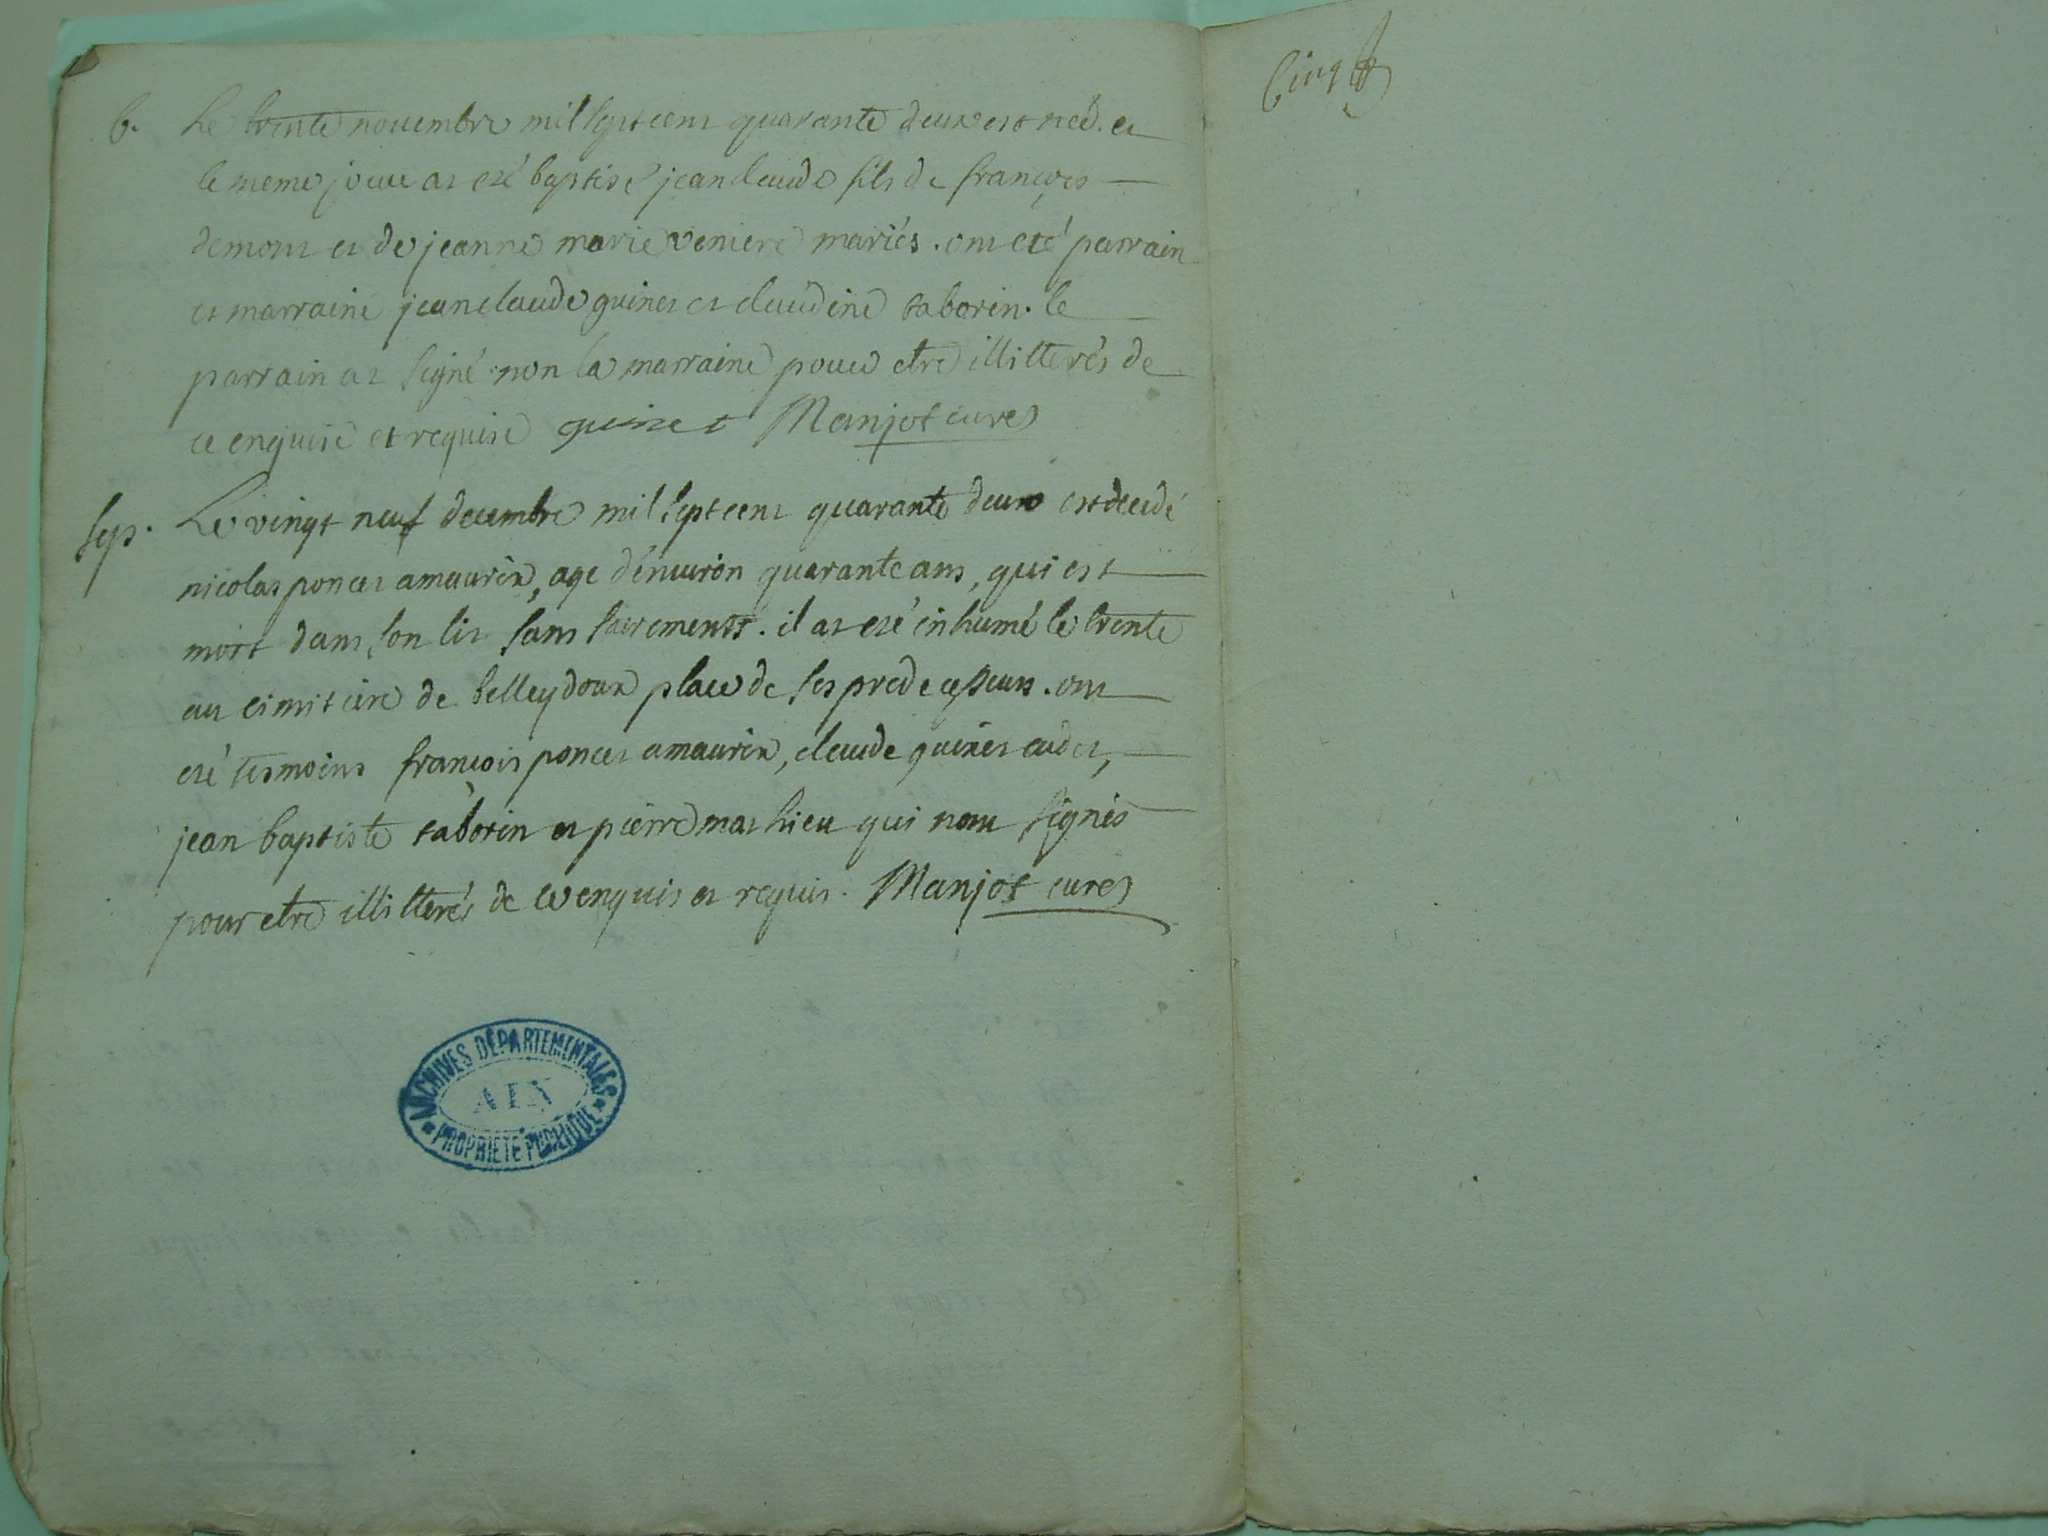 b. Le trente novembre mil sept cent quarante deux est né. et
le meme jour at eté baptisé jean claude fils de françois
demont et de jeanne marie veniere mariés. ont eté parrain
et marraine jean claude guinet et claudine taborin. le
parrain at signé non la marraine pour etre illitterés de
ce enquise et requise guinet Manjot curé
sep. Le vingt neuf decembre mil sept cent quarante deux est decedé
nicolas poncet amaurix, age d'environ quarante ans, qui est
mort dans son lit sans sacrements. il at eté inhumé le trente
au cimitiere de belleydoux place de ses predecesseurs. ont
eté tesmoins françois poncet amaurix, claude guinet cadet,
jean baptiste taborin et pierre mathieu qui nont signés
pour etre illitterés de ce enquis et requis. Manjot curé
ARCHIVES DÉPARTEMENTALES
AIN
PROPRIÉTÉ PUBLIQUE
Cinq